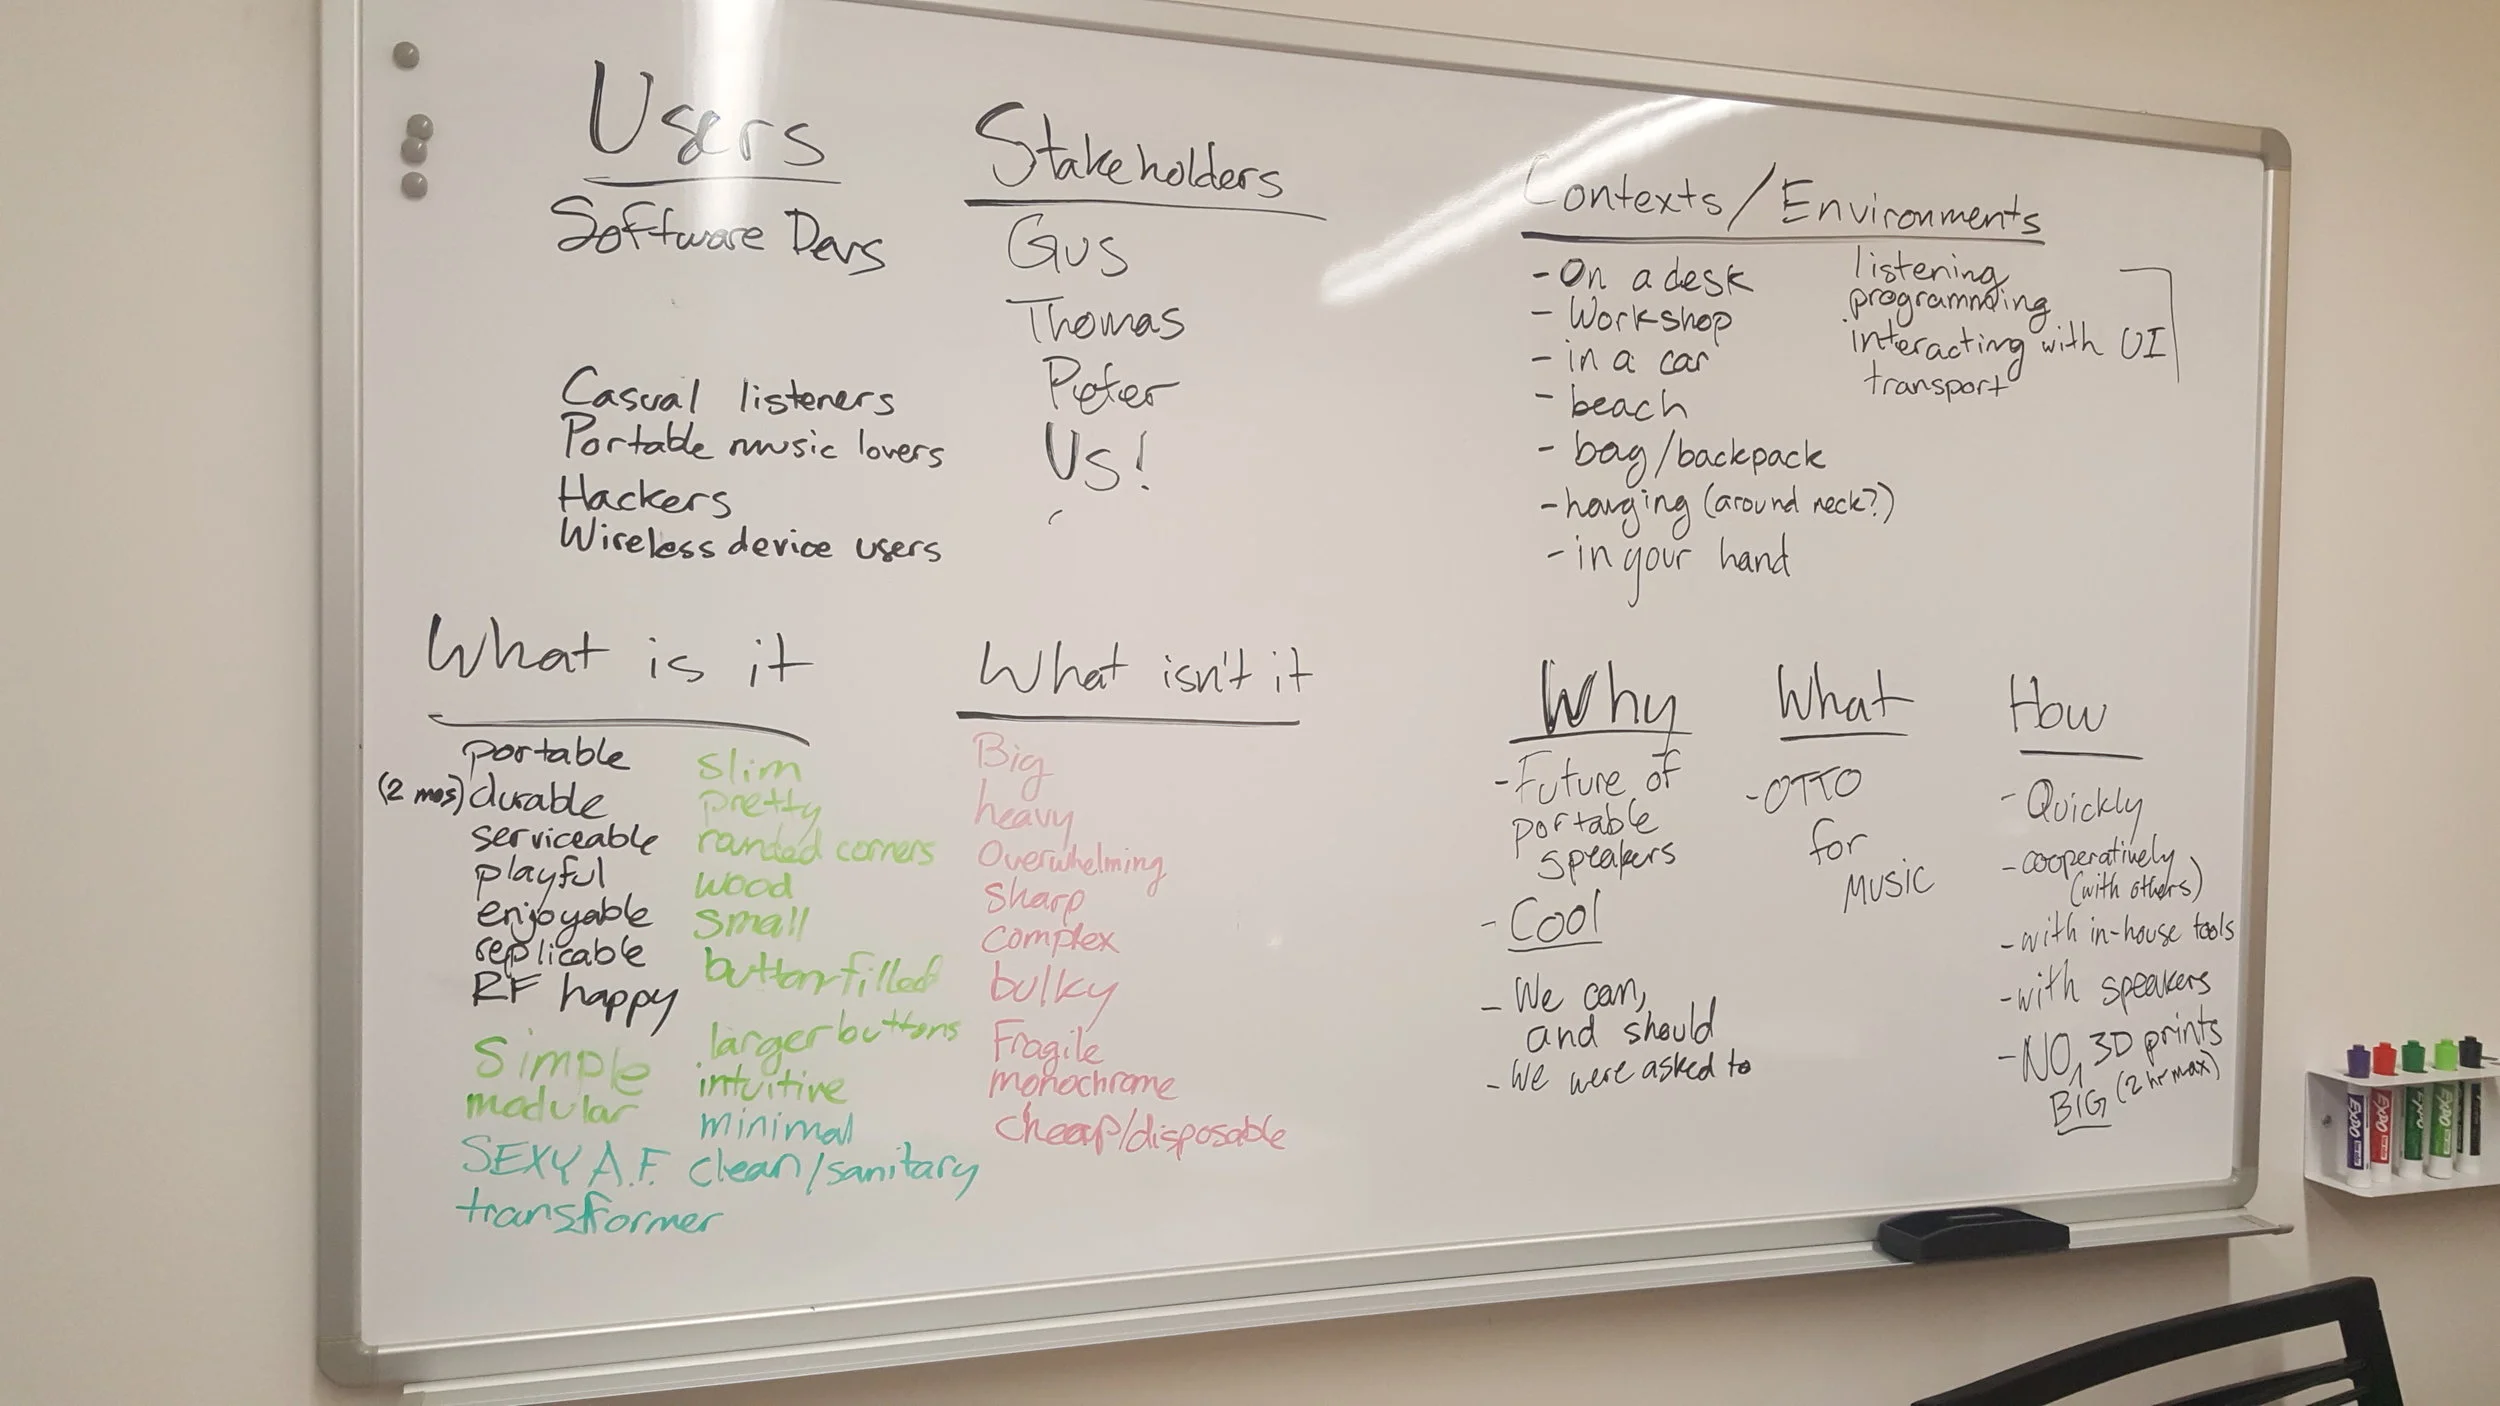 Users
Software Devs
Casual listeners
Portable music lovers
Hackers
Wireless device users
Stakeholders
Gus
Thomas
Peter
Us!
Contexts/Environments
- On a desk
- Workshop
- in a car
- beach
- bag/backpack
- hanging (around neck?)
- in your hand
listening
programming
interacting with UI
transport
What is it
portable
(2 mos) durable
serviceable
playful
enjoyable
replicable
RF happy
Simple
modular
SEXY A.F.
transformer
slim
pretty
rounded corners
wood
small
button filled
larger buttons
intuitive
minimal
clean/sanitary
What isn't it
Big
heavy
Overwhelming
Sharp
complex
bulky
Fragile
monochrome
cheap/disposable
Why
- Future of
portable
speakers
- Cool
- We can,
and should
- We were asked to
What
- OTTO
for
MUSIC
How
- Quickly
- cooperatively
(with others)
- with in-house tools
- with speakers
- NO 3D prints
BIG (2 hr max)
EXPO
EXPO
EXPO
EXPO